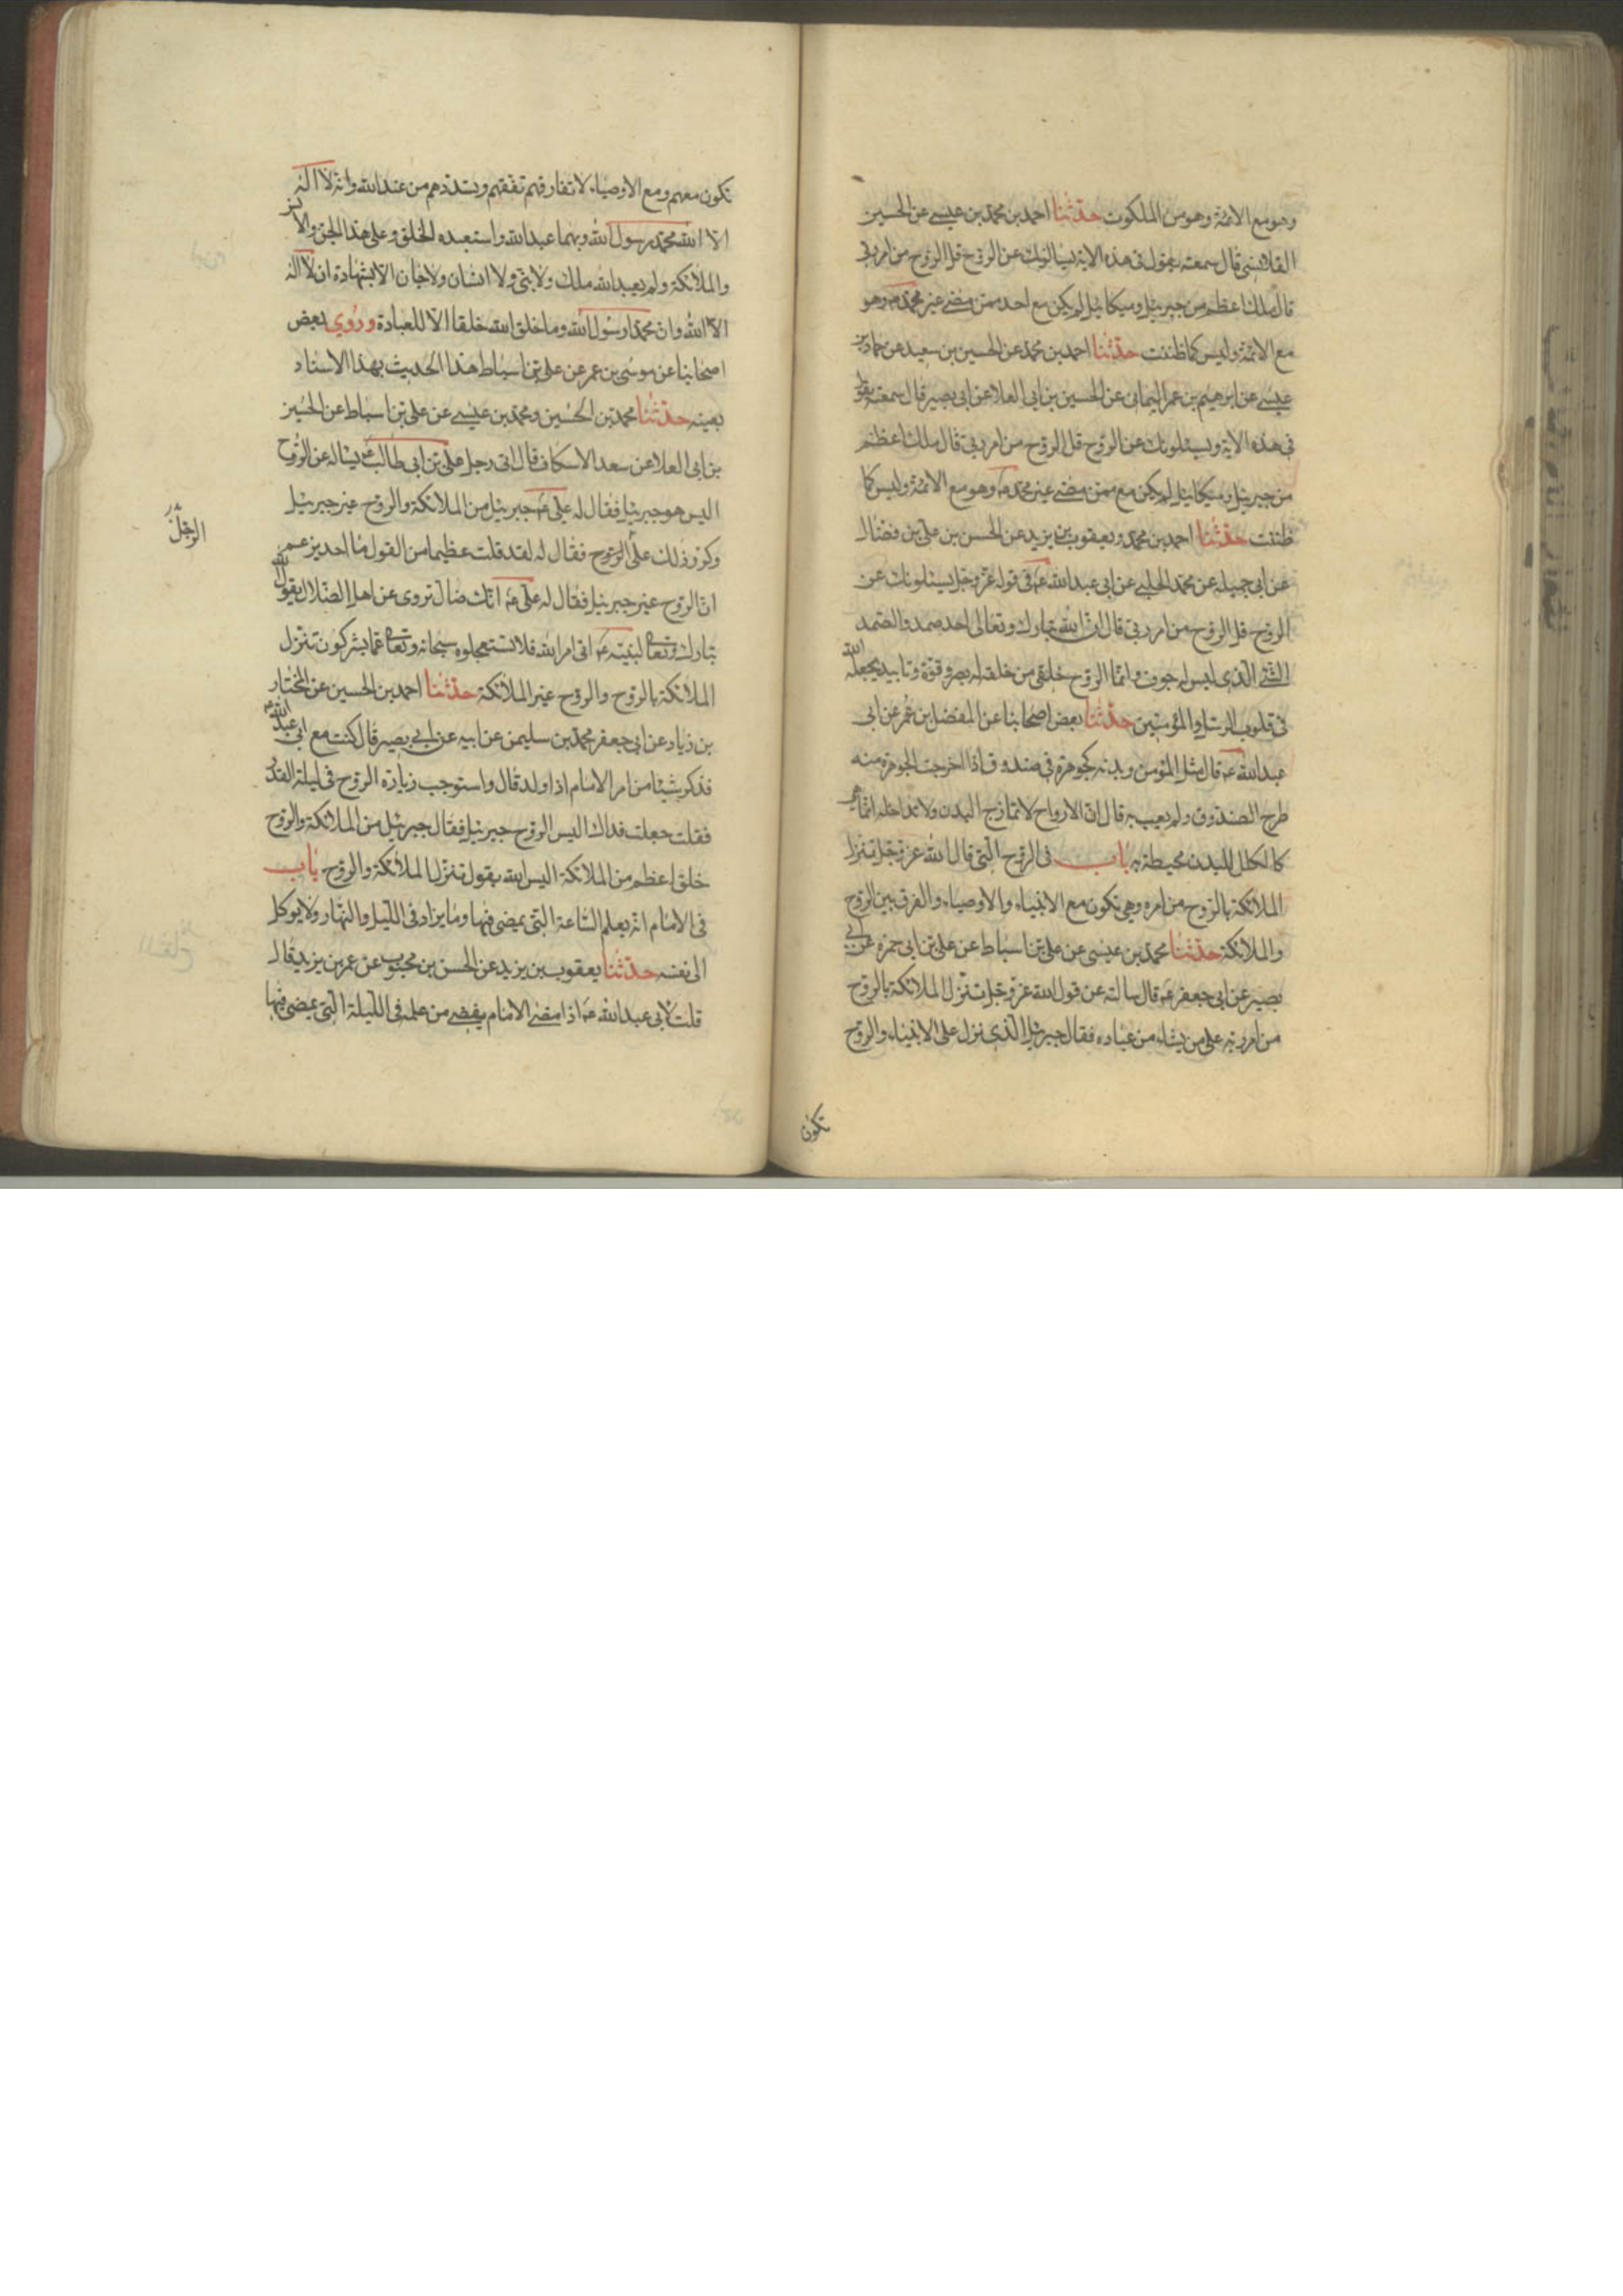 وهو مع الائمة وهو من الملكوت حدثنا احمد بن محمد بن عيسى عن الحسين
القلانسى قال سمعته يقول فى هذه الاية يسالونك عن الروح قل الروح من امر ربى
قال ملك اعظم من جبرئيل وميكائيل لم يكن مع احد ممن مضى غير محمد ص وهو
مع الائمة وليس كما ظننت حدثنا احمد بن محمد عن الحسين بن سعيد عن حماد بن
عيسى عن ابرهيم بن عمر اليمانى عن الحسين بن ابى العلا عن ابى بصير قال سمعته يقول
فى هذه الاية ويسئلونك عن الروح قل الروح من امر ربى قال ملك اعظم
من جبرئيل وميكائيل لم يكن مع ممن مضى غير محمد ص وهو مع الائمة وليس كما
ظننت حدثنا احمد بن محمد ويعقوب بن يزيد عن الحسن بن على بن فضال
عن ابى جميله عن محمد الحلبى عن ابى عبدالله عم فى قوله عز وجل يسئلونك عن
الروح قل الروح من امر ربى قال ان الله تبارك وتعالى احد صمد والصمد
الشئ الذى ليس له جوف وانما الروح خلق من خلقه له بصر وقوة وتاييد يجعله الله
فى قلوب الرسل والمؤمنين حدثنا بعض اصحابنا عن المفضل بن عمر عن ابى
عبدالله عم قال مثل المؤمن وبدنه كجوهرة فى صندوق اذا اخرجت الجوهرة منه
طرح الصندوق ولم يعب به قال ان الارواح لا تمازج البدن ولا تداخله انما هى
كالكلل للبدن محيطة به باب فى الروح التى قال الله عز وجل تنزل
الملائكة بالروح من امره وهى تكون مع الانبياء والاوصياء والفرق بين الروح
والملائكة حدثنا محمد بن عيسى عن على بن اسباط عن على بن ابى حمزه عن ابى
بصير عن ابى جعفر عم قال سالته عن قول الله عز وجل تنزل الملائكة بالروح
من امر ربه على من يشاء من عباده فقال جبرئيل الذى نزل على الانبياء والروح
تكون
تكون معهم ومع الاوصياء لا تفارقهم تفقههم وتسددهم من عند الله وانه لا اله
الا الله محمد رسول الله وبهما عبد الله واستعبده الخلق وعلى هذا الجن والانس
والملائكة ولم يعبد الله ملك ولا نبى ولا انسان ولا جان الا بشهادة ان لا اله
الا الله وان محمدا رسول الله وما خلق الله خلقا الا للعبادة وروي بعض
اصحابنا عن موسى بن عمر عن على بن اسباط هذا الحديث بهذا الاسناد
بعينه حدثنا محمد بن الحسين ومحمد بن عيسى عن على بن اسباط عن الحسين
بن ابى العلا عن سعد الاسكاف قال اتى رجل على بن ابى طالب عم يساله عن الروح
اليس هو جبرئيل فقال له على عم جبرئيل من الملائكة والروح غير جبرئيل
وكرر ذلك على الروح فقال له لقد قلت عظيما من القول ما احد يزعم
الرجل
ان الروح غير جبرئيل فقال له على عم انك ضال تروى عن اهل الضلال يقول الله
تبارك وتعالى لنبيه عم اتى امر الله فلا تستعجلوه سبحانه وتعالى عما يشركون تنزل
الملائكة بالروح والروح غير الملائكة حدثنا احمد بن الحسين عن المختار
بن زياد عن ابى جعفر محمد بن سليمن عن ابيه عن ابى بصير قال كنت مع ابى عبد الله عم
فذكر شيئا من امر الامام اذا ولد قال واستوجب زيادة الروح فى ليلة القدر
فقلت جعلت فداك اليس الروح جبرئيل فقال جبرئيل من الملائكة والروح
خلق اعظم من الملائكة اليس الله يقول تنزل الملائكة والروح باب
فى الامام انه يعلم الساعة التى يمضى فيها وما يزاد فى الليل والنهار ولا يوكل
الى نفسه حدثنا يعقوب بن يزيد عن الحسن بن محبوب عن عمر بن يزيد قال
قلت لابى عبدالله عم اذا مضى الامام يفضى من علمه فى الليلة التى يمضى فيها